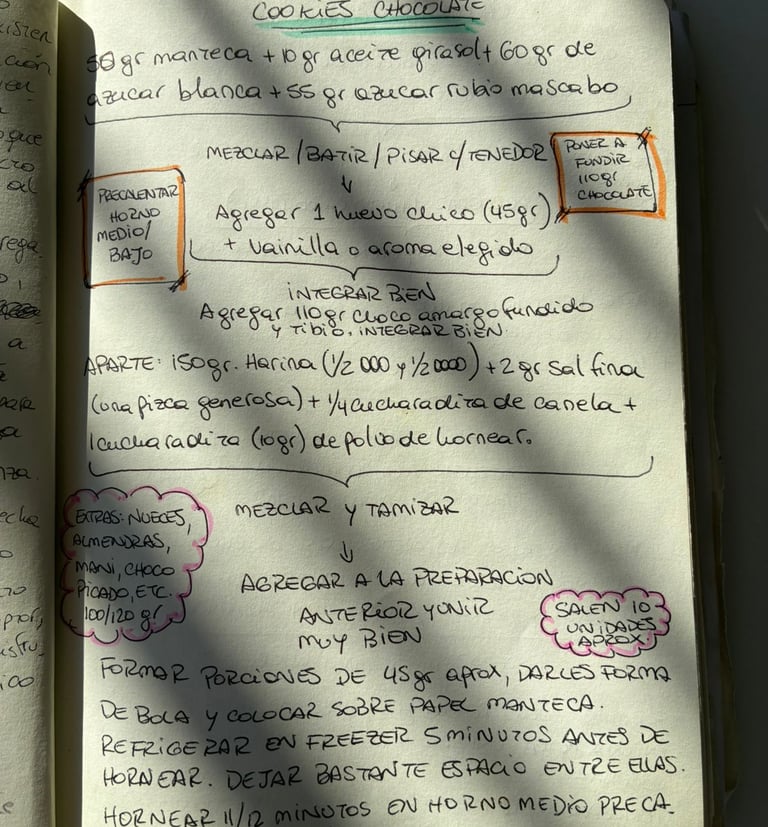 COOKIES CHOCOLATE
50 gr manteca + 10 gr aceite girasol + 60 gr de
azucar blanca + 55 gr azucar rubio mascabo
MEZCLAR / BATIR / PISAR C/TENEDOR
PONER A
FUNDIR
110gr
CHOCOLATE
PRECALENTAR
HORNO
MEDIO/
BAJO
Agregar 1 huevo chico (45gr)
+ vainilla o aroma elegido
INTEGRAR BIEN
Agregar 110gr choco amargo fundido
y TIBIO. INTEGRAR BIEN.
APARTE: 150gr. Harina (1/2 000 y 1/2 0000) + 2 gr sal fina
(una pizca generosa) + 1/4 cucharadita de canela +
1 cucharadita (10gr) de polvo de hornear.
MEZCLAR Y TAMIZAR
EXTRAS: NUECES,
ALMENDRAS,
MANI, CHOCO
PICADO, ETC.
100/120 gr
AGREGAR A LA PREPARACION
ANTERIOR Y UNIR
MUY BIEN
SALEN 10
UNIDADES
APROX.
FORMAR PORCIONES DE 45gr aprox, DARLES FORMA
DE BOLA Y COLOCAR SOBRE PAPEL MANTECA.
REFRIGERAR EN FREEZER 5 MINUTOS ANTES DE
HORNEAR. DEJAR BASTANTE ESPACIO ENTRE ELLAS.
HORNEAR 11/12 MINUTOS EN HORNO MEDIO PRECA.